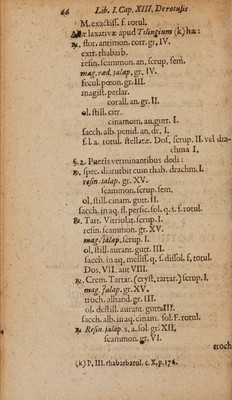 66 Lib. I. Cap. XIII. De rotulis
M. exactiss. f. rotul.
Aliæ laxativæ apud Tilingium (k) hæ:
℞. flor. antimon. corr. gr. IV.
extr. rhabarb.
resin. scammon. an, scrup, sem.
mag. rad. jalap, gr. IV.
fecul. pæon. gr. III.
magist. perlar.
corall. an. gr. II.
ol. still. citr.
cinamom, an. gutt. I.
sacch. alb. penid. an, dr. I.
f. l. a. rotul. stellatæ. Dos, scrup. II. vel drachma I,
§. 2. Pueris verminantibus dedi:
℞, spec. diaturbit cum rhab. drachm. I.
resin. jalap. gr. XV.
scammon. scrup. sem.
ol, still. cinam. gutt. II.
sacch. in aq. fl. persic. sol. q. s. f. rotul.
℞. Tart. Vitriolat. scrup. I.
resin. scammon. gr. XV.
mag. jalap. scrup. I.
ol, still. aurant. gutt. III.
sacch. in aq, meliss. q, s. dissol. f, rotul.
Dos. VII. aut VIII.
℞. Crem. Tartar. (cryst, tartar.) scrup. I,
mag. jalap. gr. XV.
troch. alhand. gr. III.
ol. destill. aurant. gutt. III.
sacch. alb. in aq. cinam. sol. F. rotul.
℞ Resin. jalap. s, a. sol. gr. XII.
scammon. gr. VI.
troch
(k) P. III. rhabarbarol. c. X, p. 174.